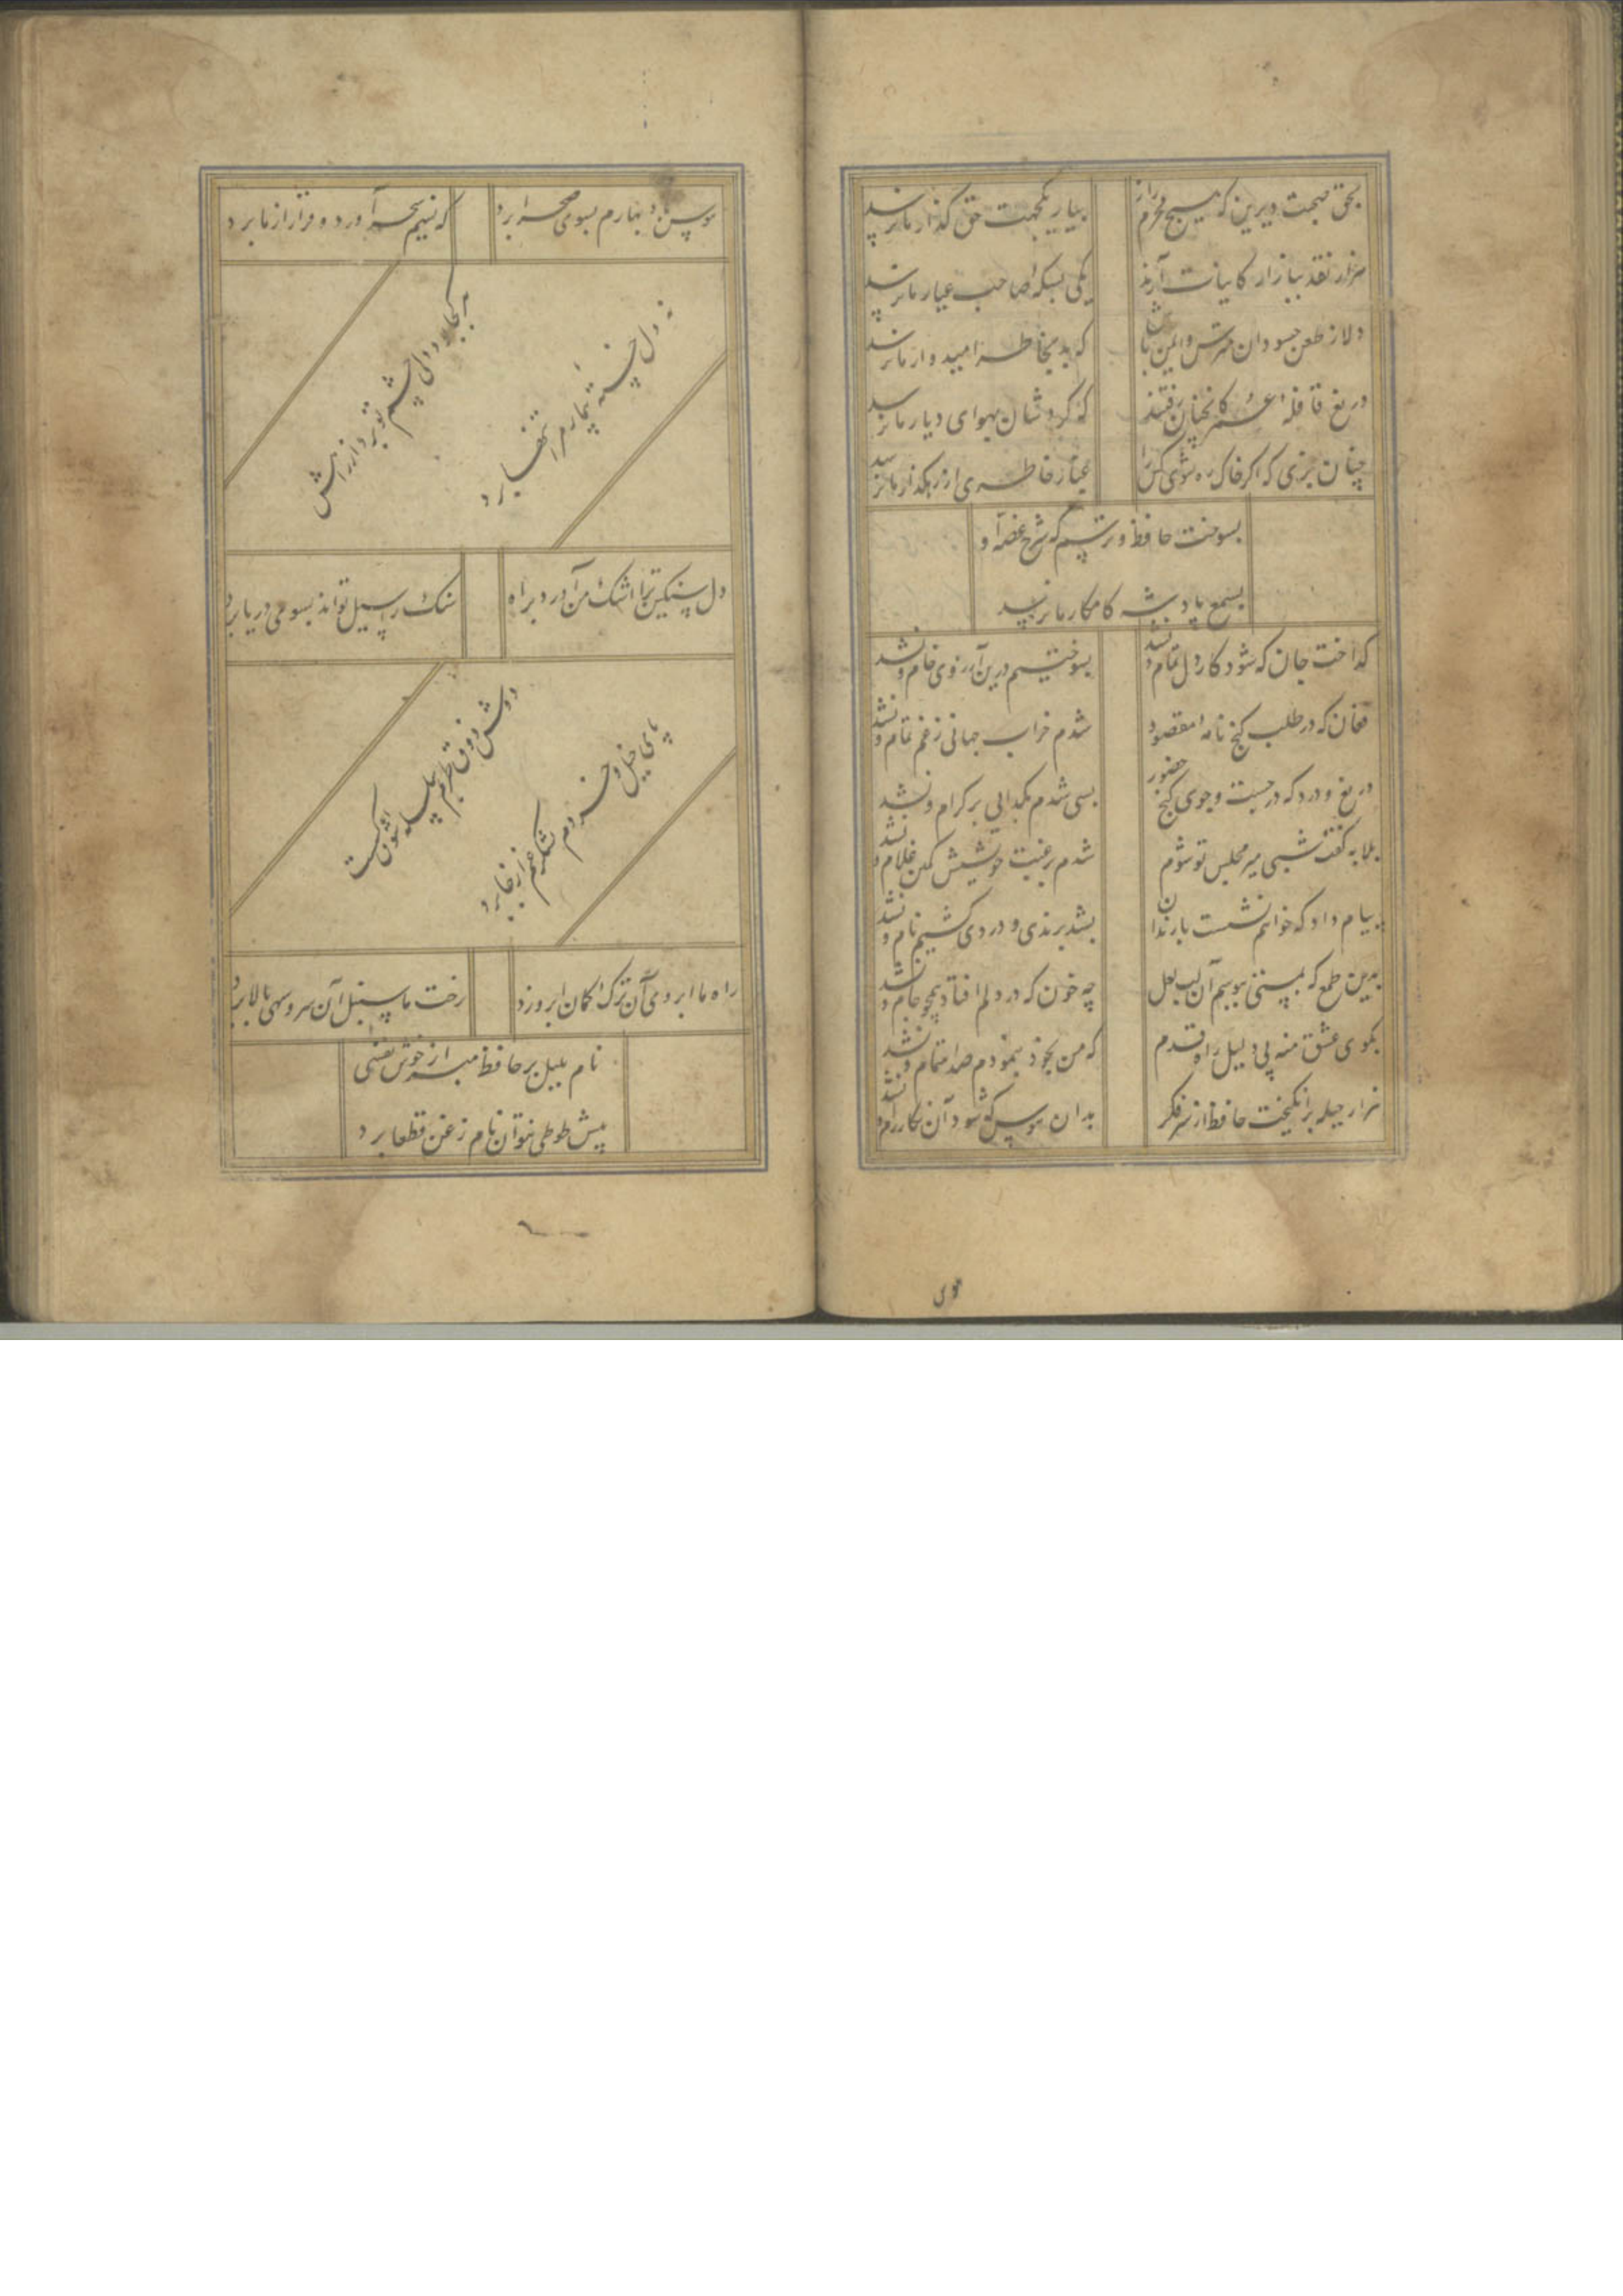 بحق صحبت دیرین که هیچ محرم راز
بیار یکجهت حق گذار ما نرسد
هزار نقد ببازار کاینات آرند
یکی بسکه صاحب عیار ما نرسد
دلا ز طعن حسودان مترس و ایمن باش
که بد بخاطر امیدوار ما نرسد
دریغ قافله عمر کانچنان رفتند
که گردشان بهوای دیار ما نرسد
چنان بزی که اگر خاک ره شوی کس را
غبار خاطری از رهگذار ما نرسد
بسوخت حافظ و ترسم که شرح غصه او
بسمع پادشه کامکار ما نرسد
گداخت جان که شود کار دل تمام و نشد
بسوختیم درین آرزوی خام و نشد
فغان که در طلب گنج نامه مقصود
شدم خراب جهانی ز غم تمام و نشد
دریغ و درد که در جست و جوی گنج حضور
بسی شدم بگدایی بر کرام و نشد
بلابه گفت شبی میر مجلس تو شوم
شدم برغبت خویشش کمین غلام و نشد
پیام داد که خواهم نشست با رندان
بشد برندی و دردی کشیم نام و نشد
بدین طمع که بمستی ببوسم آن لب لعل
چه خون که در دلم افتاد همچو جام و نشد
بکوی عشق منه بی دلیل راه قدم
که من بخود بنمودم صد اهتمام و نشد
هزار حیله برانگیخت حافظ از سر فکر
بدان هوس که شود آن نگار رام و نشد
هوس
هوس باد بهارم بسوی صحرا برد
که نسیم سحر آورد و قرار از ما برد
هر کجا بود دلی چشم تو برد از راهش
نه دل خسته بیمار مرا تنها برد
دل سنگین ترا اشک من آورد براه
سنگ را سیل تواند بسوی دریا برد
دوش ذوق طربم سلسله شوق گسست
پای خیل خردم لشکر غم از جا برد
راه ما ابروی آن ترک کمان ابرو زد
رخت ما سنبل آن سرو سهی بالا برد
نام بلبل بر حافظ مبر از خوش نفسی
پیش طوطی نتوان نام زغن قطعا برد